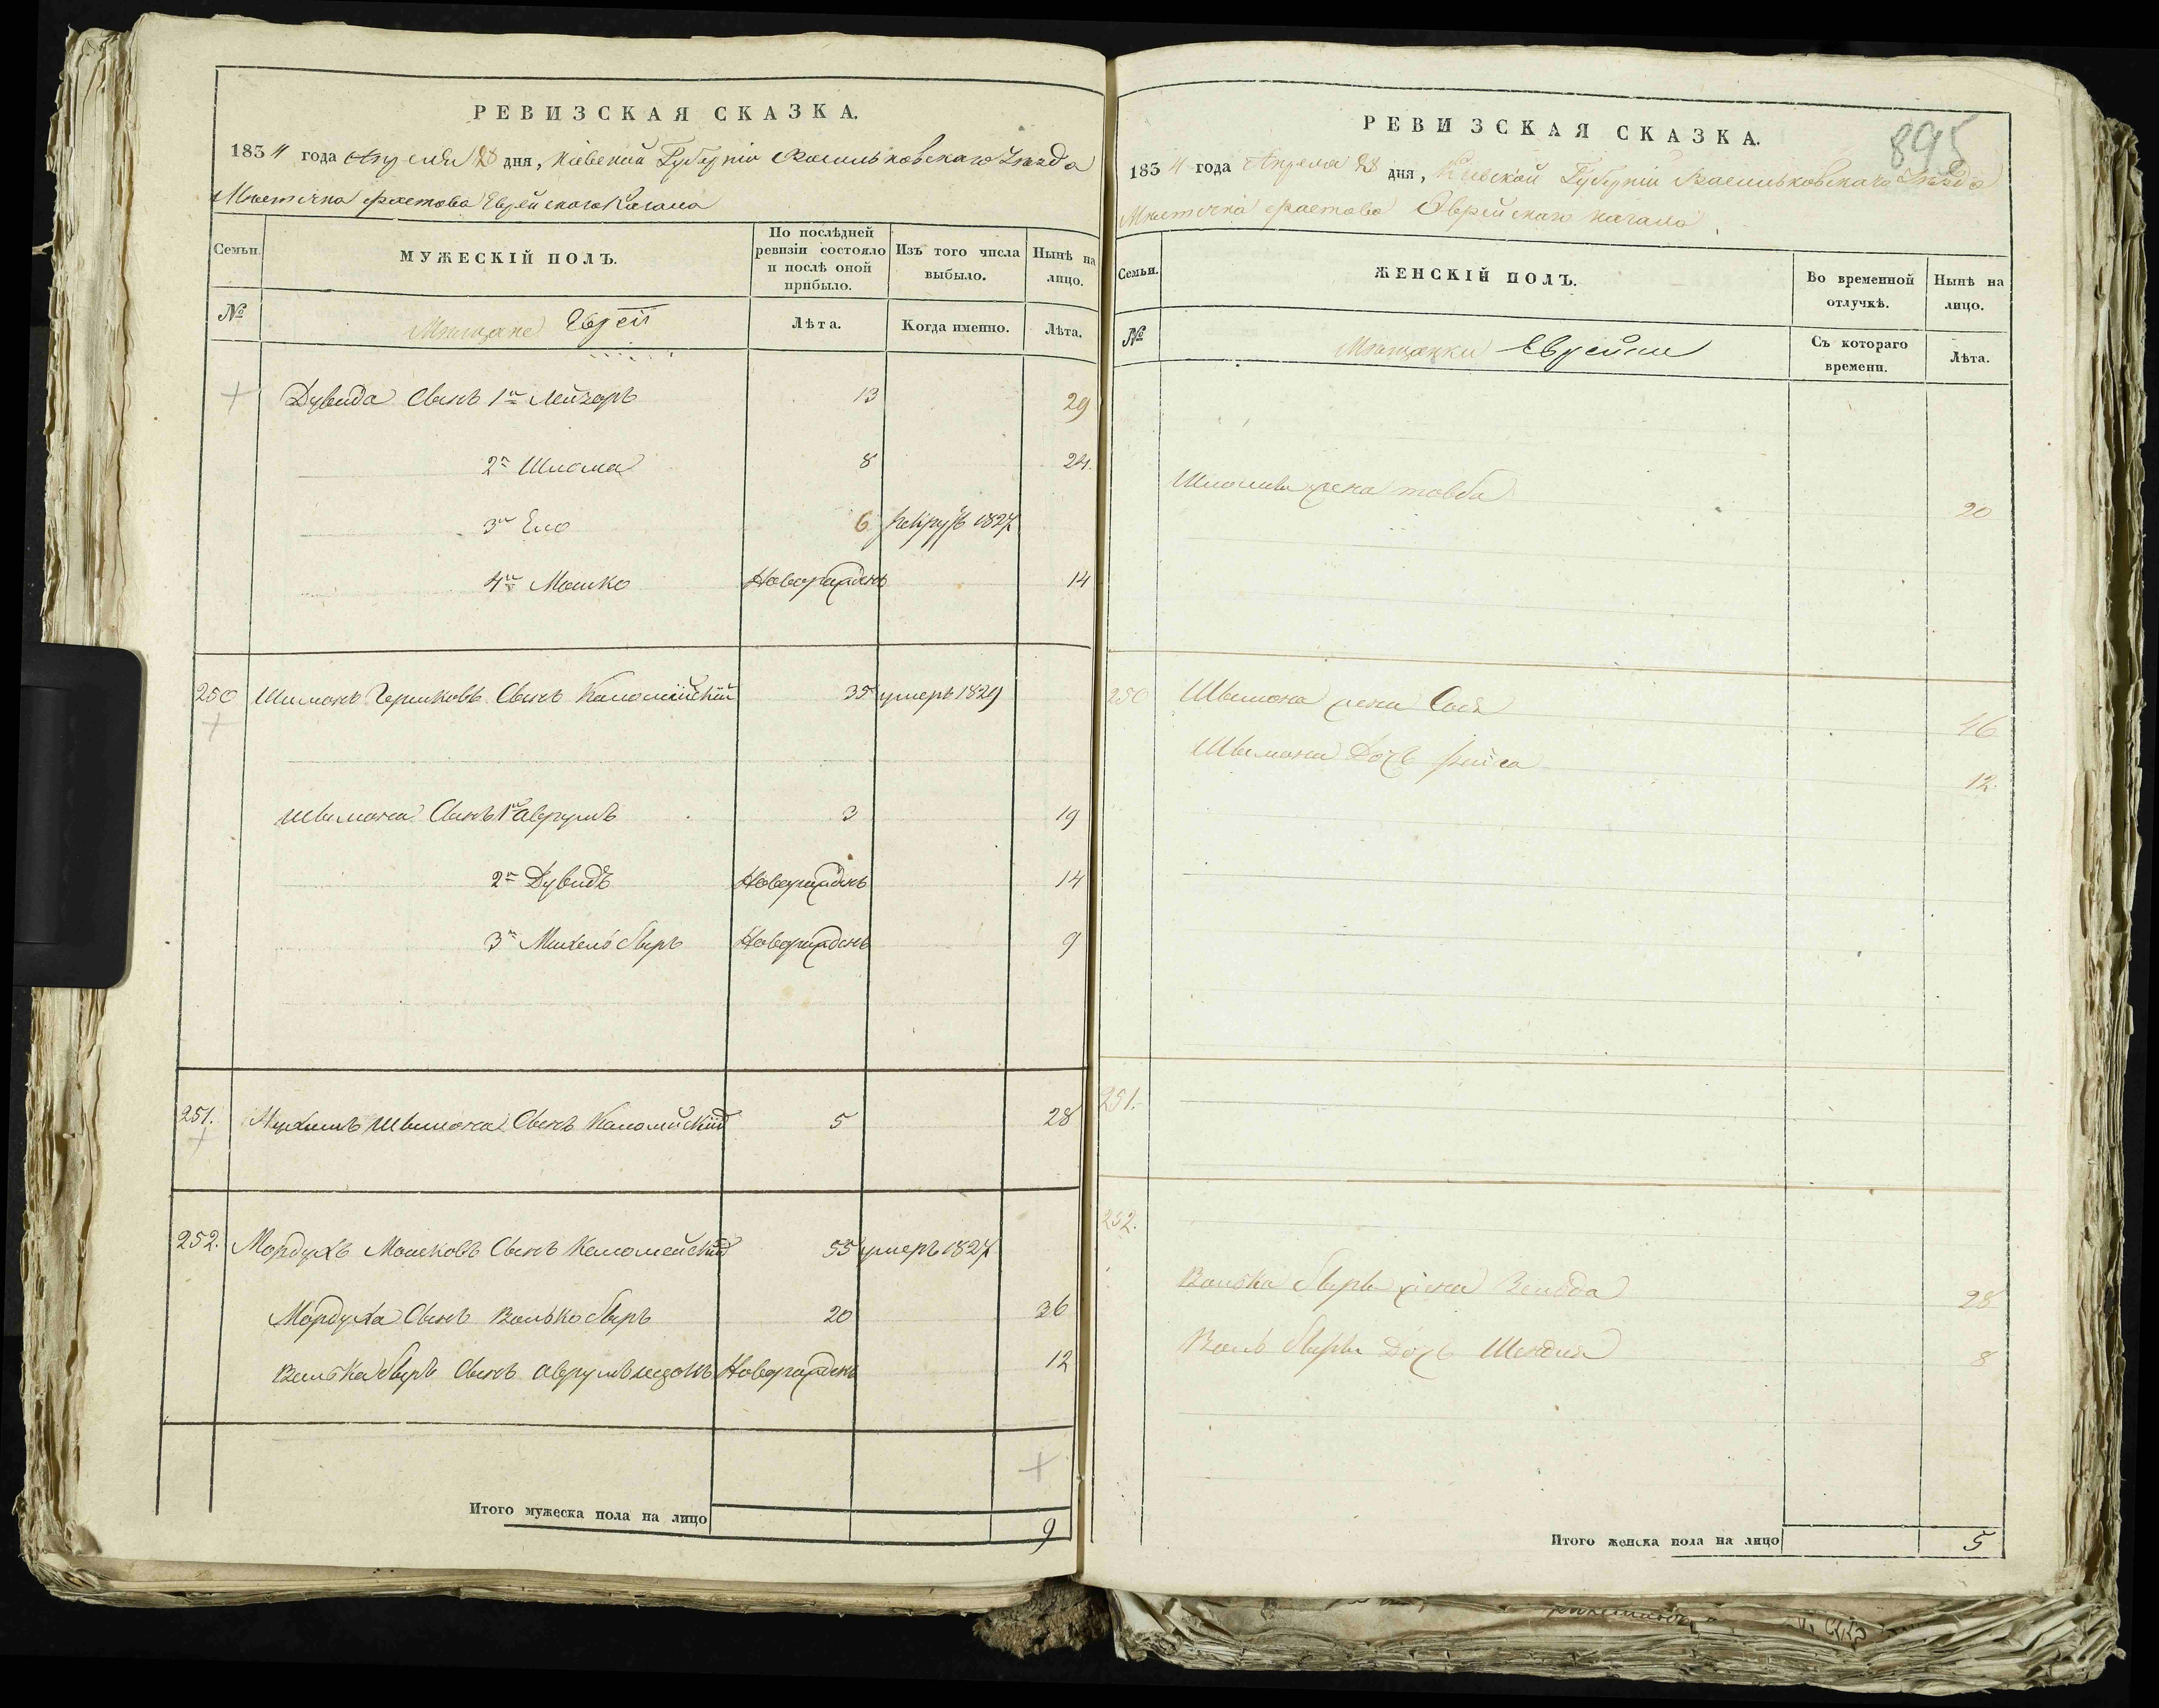 РЕВИЗСКАЯ СКАЗКА.
1834 года Апреля 28 дня, Кіевской Губерніи Васильковскаго Уезда
Местечка Фастова Еврейскаго Кагала
Семьи.
МУЖЕСКІЙ ПОЛЪ.
По послѣдней ревизіи состояло и послѣ оной прибыло.
Изъ того числа выбыло.
Нынѣ на лицо.
№
Мещане Евреи
Лѣта.
Когда именно.
Лѣта.
Дувида Сынъ 1й Лейзоръ 13 29
2й Шлома 8 24.
3й Ело 6 1827
4й Мошко Новорожденъ 14
250 Шимонъ Гершковъ Сынъ Каломыйский 35 умеръ 1829
Швимона Сынъ 1й Аврумъ 3 19
2й Дувидъ Новорожденъ 14
3й Михель Сверъ Новорожденъ 9
251. Швимона Сынъ Каломийский 5 28
252. Мордухъ Мошковъ Сынъ Каломейский 55 умеръ 1827
Мордуха Сынъ Волько Сверъ 20 36
Волька Сынъ Аврумъ Новорожденъ 12
Итого мужеска пола на лицо 9
895
РЕВИЗСКАЯ СКАЗКА.
1834 года Апреля 28 дня, Кіевской Губерніи Васильковскаго Уезда
Местечка Фастова Еврейскаго кагала
Семьи.
ЖЕНСКІЙ ПОЛЪ.
Во временной отлучкѣ.
Нынѣ на лицо.
№
Мещанки Еврейки
Съ котораго времени.
Лѣта.
Шломы жена товба 20
250 Швимона жена Сося 46
Швимона Дочь Рейса 12.
251.
252.
Волька жена 28
Дочь Шендля 8
Итого женска пола на лицо 5